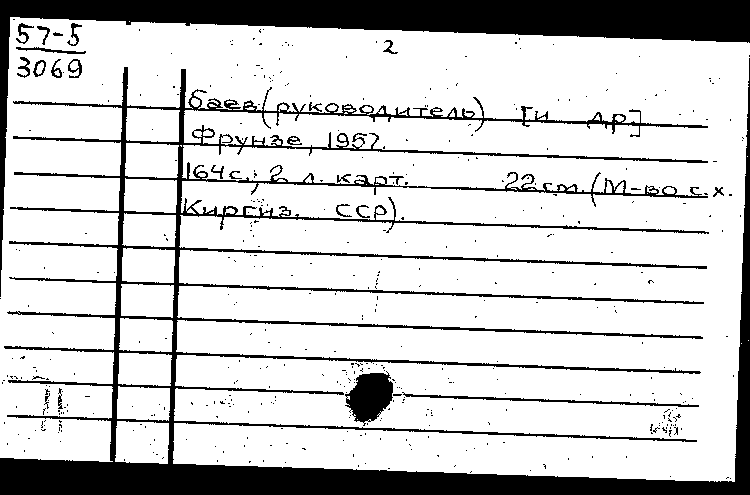 57-5
3069
2
баев (руководитель) [и др]
Фрунзе, 1957.
164 с.; 2 л. карт. 22 см. (М-во с.х.
Киргиз. ССР).